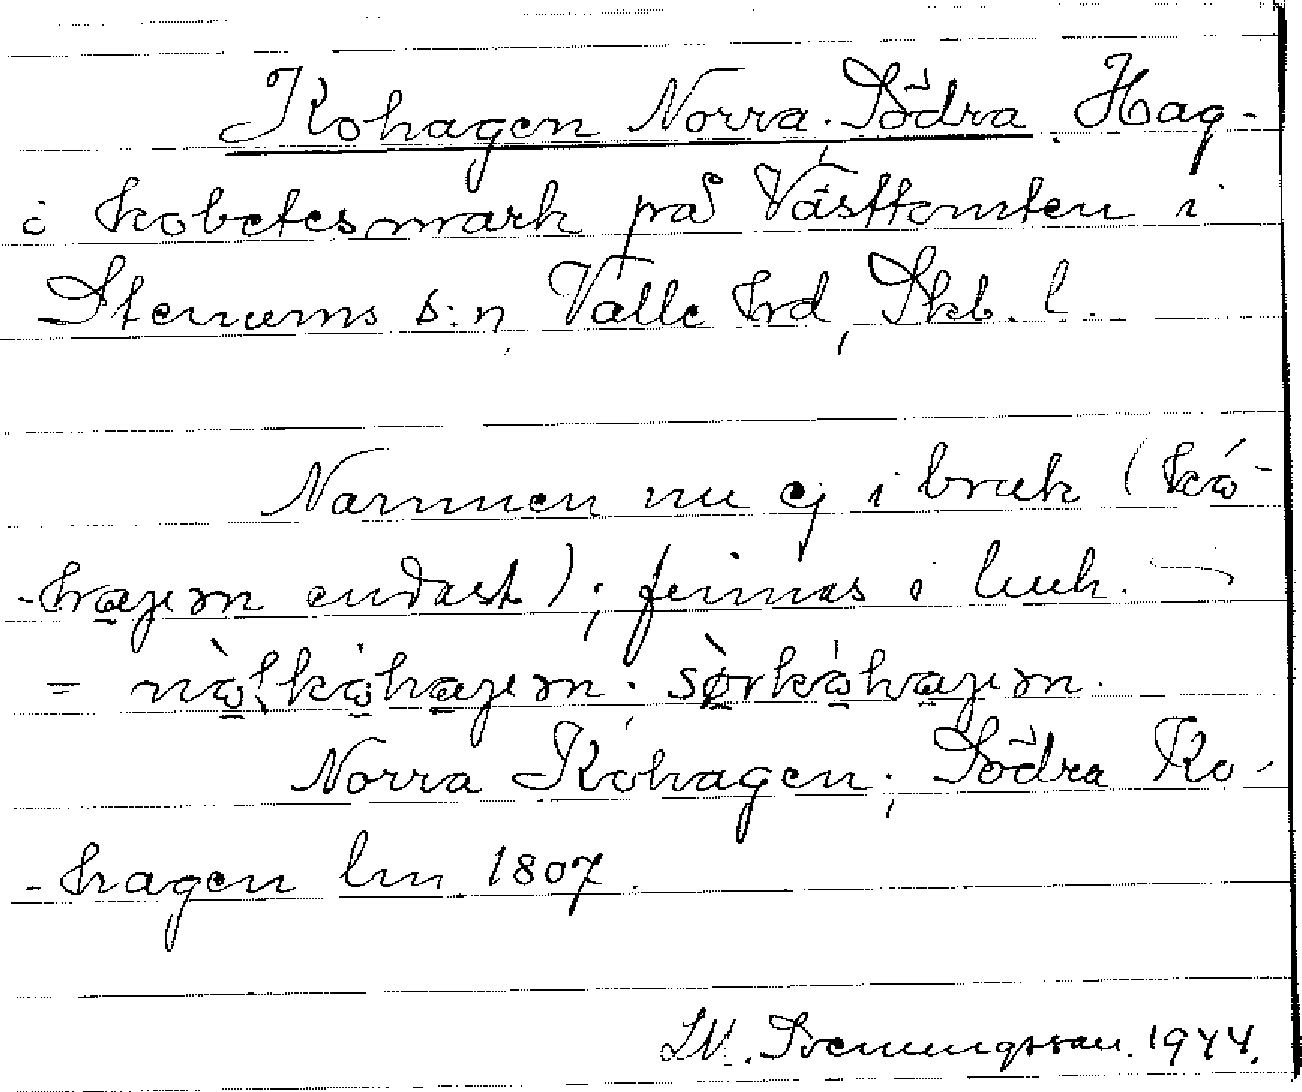 Kohagen Norra. Södra. Hag-
i kobetesmark på Västtomten i
Stenums s:n, Valle hrd, Skb. l.
Namnen nu ej i bruk (kó-
-hagen endast); finnas i luk.
= nòḷkóhagen. sørkóhagen.
Norra Kohagen; Södra Ko-
-hagen lm 1807.
Svenungsson. 1944.